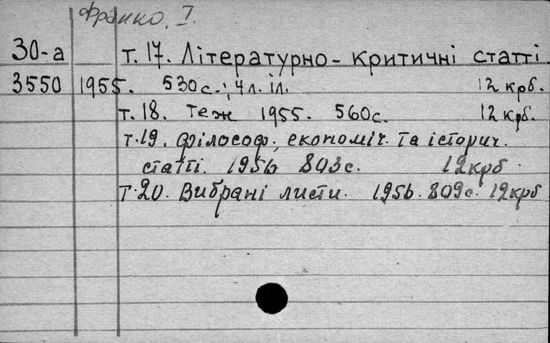 Франко, І.
30-а т. 17. Літературно-критичні статті.
3550 1955. 530 с.; 4 л. іл. 12 крб.
т. 18. теж 1955. 560 с. 12 крб.
т. 19. філософ., економіч. та історич.
статті. 1956 803 с. 12 крб.
т. 20. Вибрані листи. 1956. 809 с. 12 крб